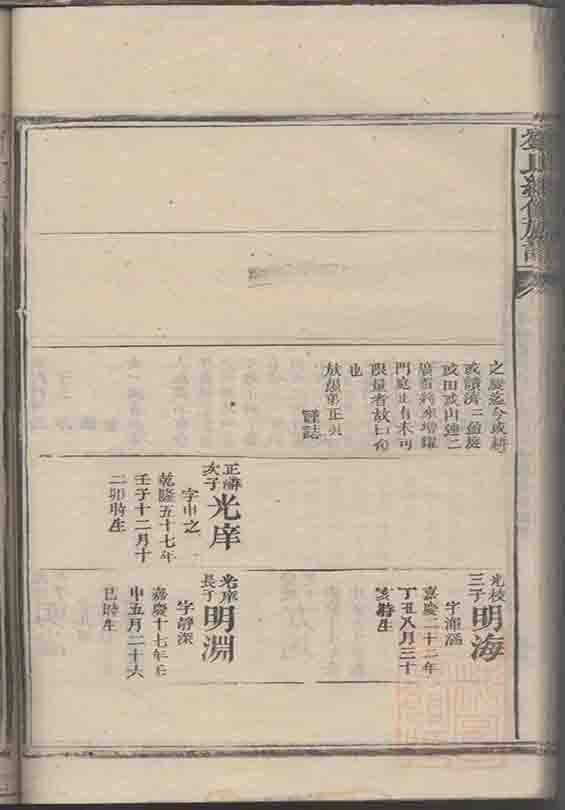 之慶迄今或耕
或讀濟二益庭
或田或山連二
廣置將來增耀
門庭正有未可
限量者故曰衍
也
謹誌
正
次子
光庠
字申之
乾隆五十七年
壬子十二月十
二卯時生
光校
三子
明海
字
嘉慶二十二年
丁丑八月三十
亥時生
光庠
長子
明淵
字靜深
嘉慶十七年壬
申五月二十六
巳時生